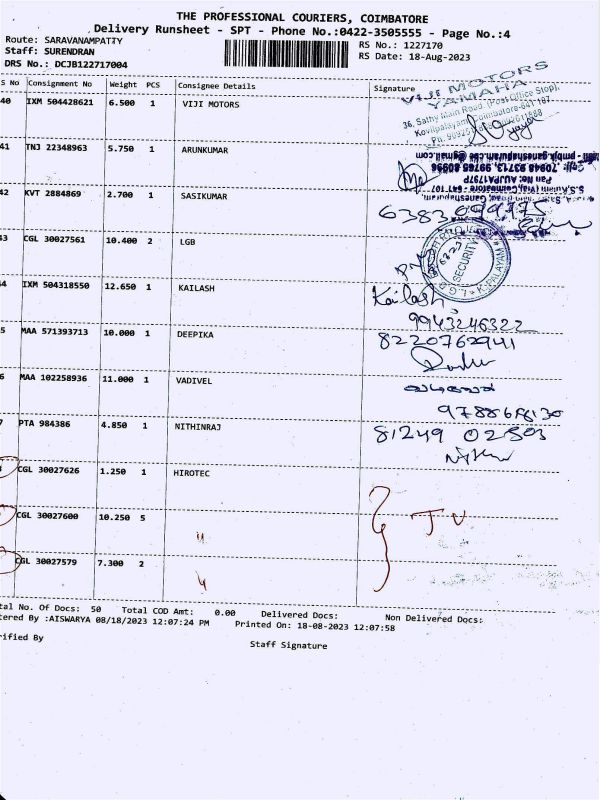 THE PROFESSIONAL COURIERS, COIMBATORE
Delivery Runsheet - SPT - Phone No.:0422-3505555 - Page No.:4
Route: SARAVANAMPATTY
RS No.: 1227170
Staff: SURENDRAN
RS Date: 18-Aug-2023
DRS No.: DCJB122717004
S No Consignment No Weight PCS Consignee Details Signature
40 IXM 504428621 6.500 1 VIJI MOTORS
VIJI MOTORS
YAMAHA
36, Sathy Main Road, (Post Office Stop),
41 TNJ 22348963 5.750 1 ARUNKUMAR
42 KVT 2884869 2.700 1 SASIKUMAR
43 CGL 30027561 10.400 2 LGB
SECURITY
44 IXM 504318550 12.650 1 KAILASH Kailash
9943246322
5 MAA 571393713 10.000 1 DEEPIKA 8220762941
6 MAA 102258936 11.000 1 VADIVEL
7 PTA 984386 4.850 1 NITHINRAJ
CGL 30027626 1.250 1 HIROTEC
CGL 30027600 10.250 5 "
CGL 30027579 7.300 2 "
tal No. Of Docs: 50 Total COD Amt: 0.00 Delivered Docs: Non Delivered Docs:
tered By :AISWARYA 08/18/2023 12:07:24 PM Printed On: 18-08-2023 12:07:58
rified By
Staff Signature